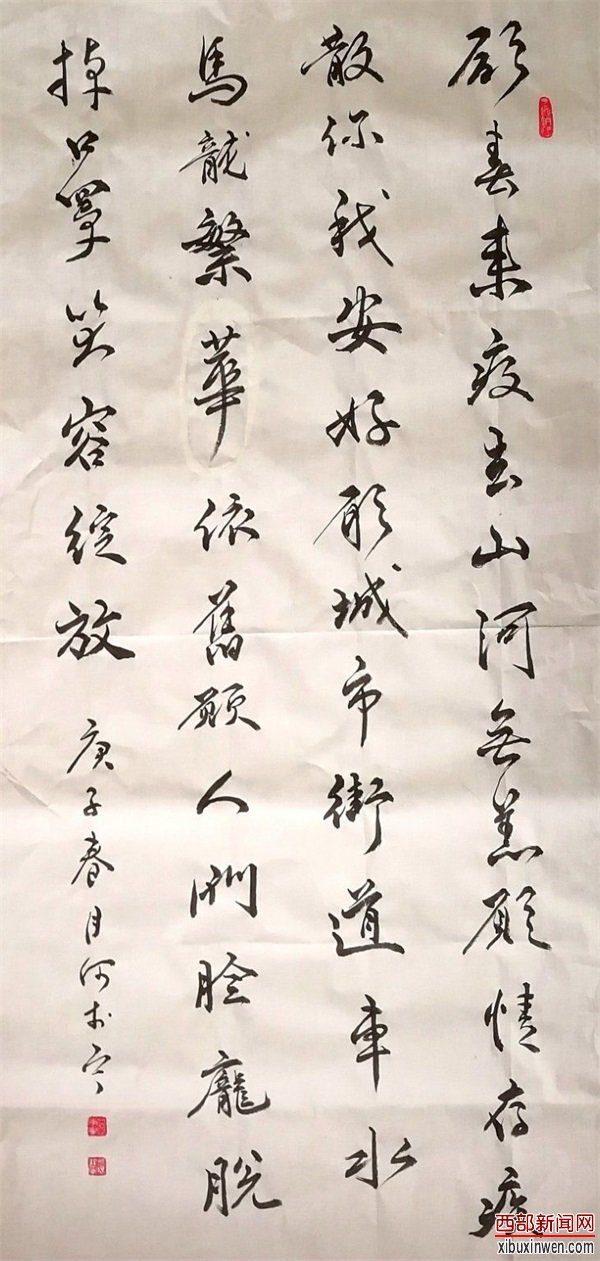 願春来疫去山河無恙願情存疫
散你我安好願城市街道車水
馬龍繁華依舊願人们脸龐脱
掉口罩笑容綻放
庚子春月何
西部新闻网
xibuxinwen.com